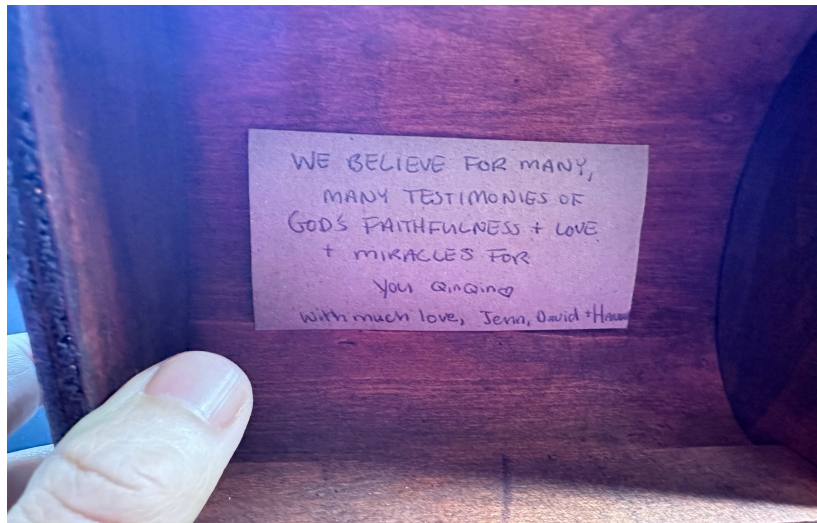 WE BELIEVE FOR MANY,
MANY TESTIMONIES OF
GOD'S FAITHFULNESS + LOVE
+ MIRACLES FOR
you QinQing
with much love, Jenn, David +